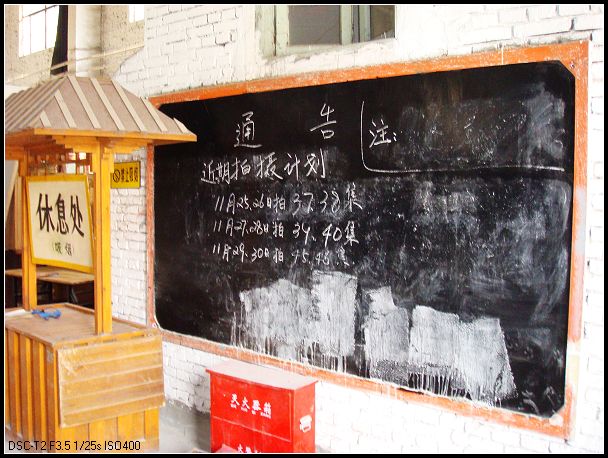 通告
注:
近期拍摄计划
11月25.26日拍 37.38集
11月27.28日拍 39.40集
11月29.30日拍 45.48集
休息处
禁止吸烟
灭火器箱
DSC-T2 F3.5 1/25s ISO400